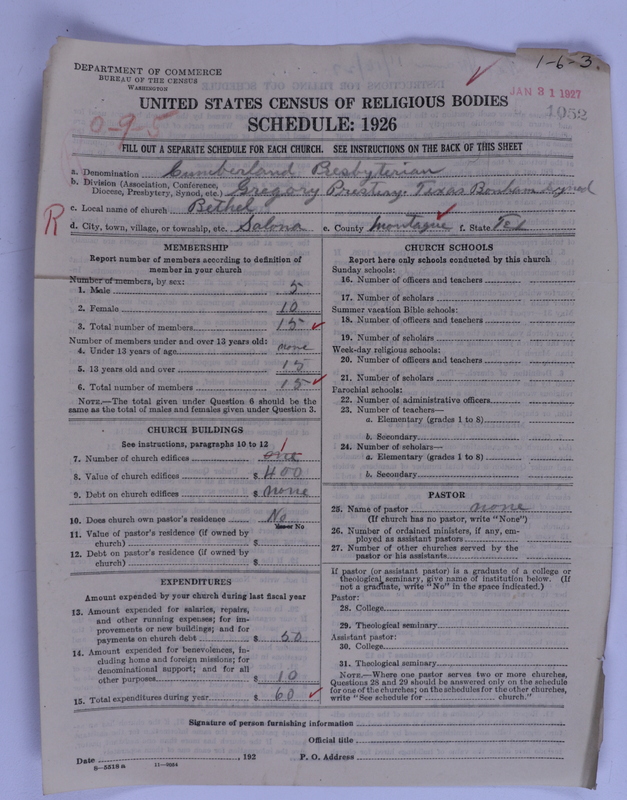 1-6-3.
DEPARTMENT OF COMMERCE
BUREAU OF THE CENSUS
WASHINGTON
JAN 31 1927
1052
UNITED STATES CENSUS OF RELIGIOUS BODIES
SCHEDULE: 1926
0-9-5
FILL OUT A SEPARATE SCHEDULE FOR EACH CHURCH. SEE INSTRUCTIONS ON THE BACK OF THIS SHEET
a. Denomination Cumberland Presbyterian
b. Division (Association, Conference,
Diocese, Presbytery, Synod, etc.) Gregory Texas Bonham
c. Local name of church Bethel
R
d. City, town, village, or township, etc. Salona e. County Montague f. State Tex
MEMBERSHIP
Report number of members according to definition of
member in your church
Number of members, by sex:
1. Male 5
2. Female 10
3. Total number of members 15
Number of members under and over 13 years old:
4. Under 13 years of age none
5. 13 years old and over 15
6. Total number of members 15
NOTE.—The total given under Question 6 should be the
same as the total of males and females given under Question 3.
CHURCH BUILDINGS
See instructions, paragraphs 10 to 12
1
7. Number of church edifices one
8. Value of church edifices $ 400
9. Debt on church edifices $ none
10. Does church own pastor's residence No
Yes or No
11. Value of pastor's residence (if owned by
church) $
12. Debt on pastor's residence (if owned by
church) $
EXPENDITURES
Amount expended by your church during last fiscal year
13. Amount expended for salaries, repairs,
and other running expenses; for im-
provements or new buildings; and for
payments on church debt $ 50
14. Amount expended for benevolences, in-
cluding home and foreign missions; for
denominational support; and for all
other purposes $ 10
15. Total expenditures during year $ 60
CHURCH SCHOOLS
Report here only schools conducted by this church
Sunday schools:
16. Number of officers and teachers
17. Number of scholars
Summer vacation Bible schools:
18. Number of officers and teachers
19. Number of scholars
Week-day religious schools:
20. Number of officers and teachers
21. Number of scholars
Parochial schools:
22. Number of administrative officers
23. Number of teachers—
a. Elementary (grades 1 to 8)
b. Secondary
24. Number of scholars—
a. Elementary (grades 1 to 8)
b. Secondary
PASTOR
25. Name of pastor none
(If church has no pastor, write "None")
26. Number of ordained ministers, if any, em-
ployed as assistant pastors
27. Number of other churches served by the
pastor or his assistants
If pastor (or assistant pastor) is a graduate of a college or
theological seminary, give name of institution below. (If
not a graduate, write "No" in the space indicated.)
Pastor:
28. College
29. Theological seminary
Assistant pastor:
30. College
31. Theological seminary
NOTE.—Where one pastor serves two or more churches,
Questions 28 and 29 should be answered only on the schedule
for one of the churches; on the schedules for the other churches,
write "See schedule for church."
Signature of person furnishing information
Official title
Date , 192 P. O. Address
8-5518a 11-9064